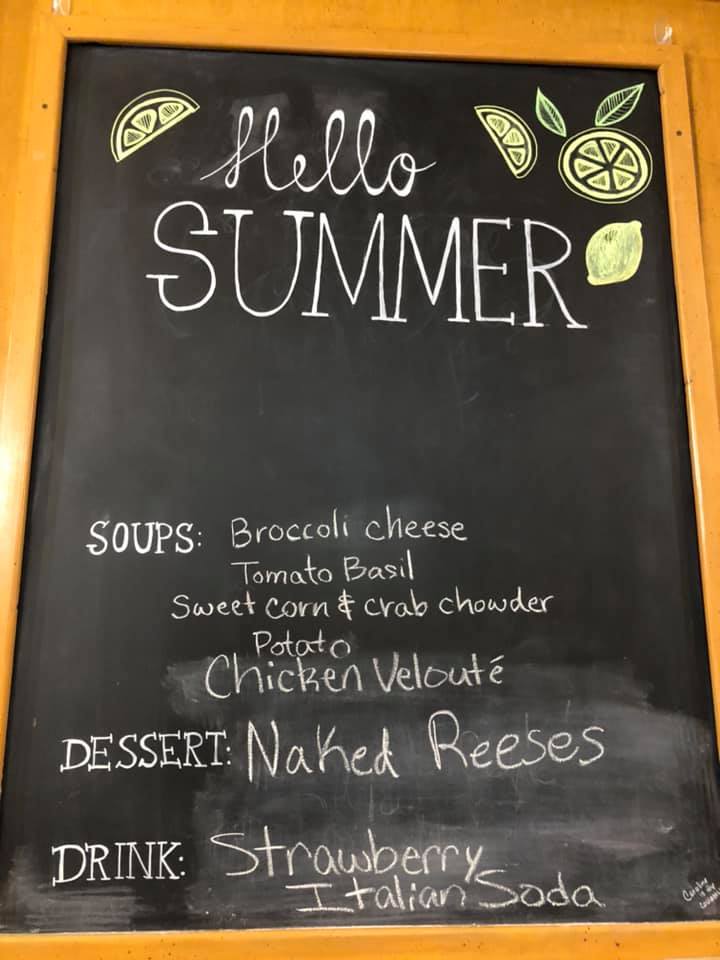 Hello
SUMMER
SOUPS: Broccoli cheese
Tomato Basil
Sweet corn & crab chowder
Potato
Chicken Velouté
DESSERT: Naked Reeses
DRINK: Strawberry
Italian Soda